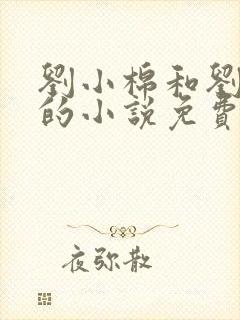 劉小棉和劉
的小說免費
夜弥散